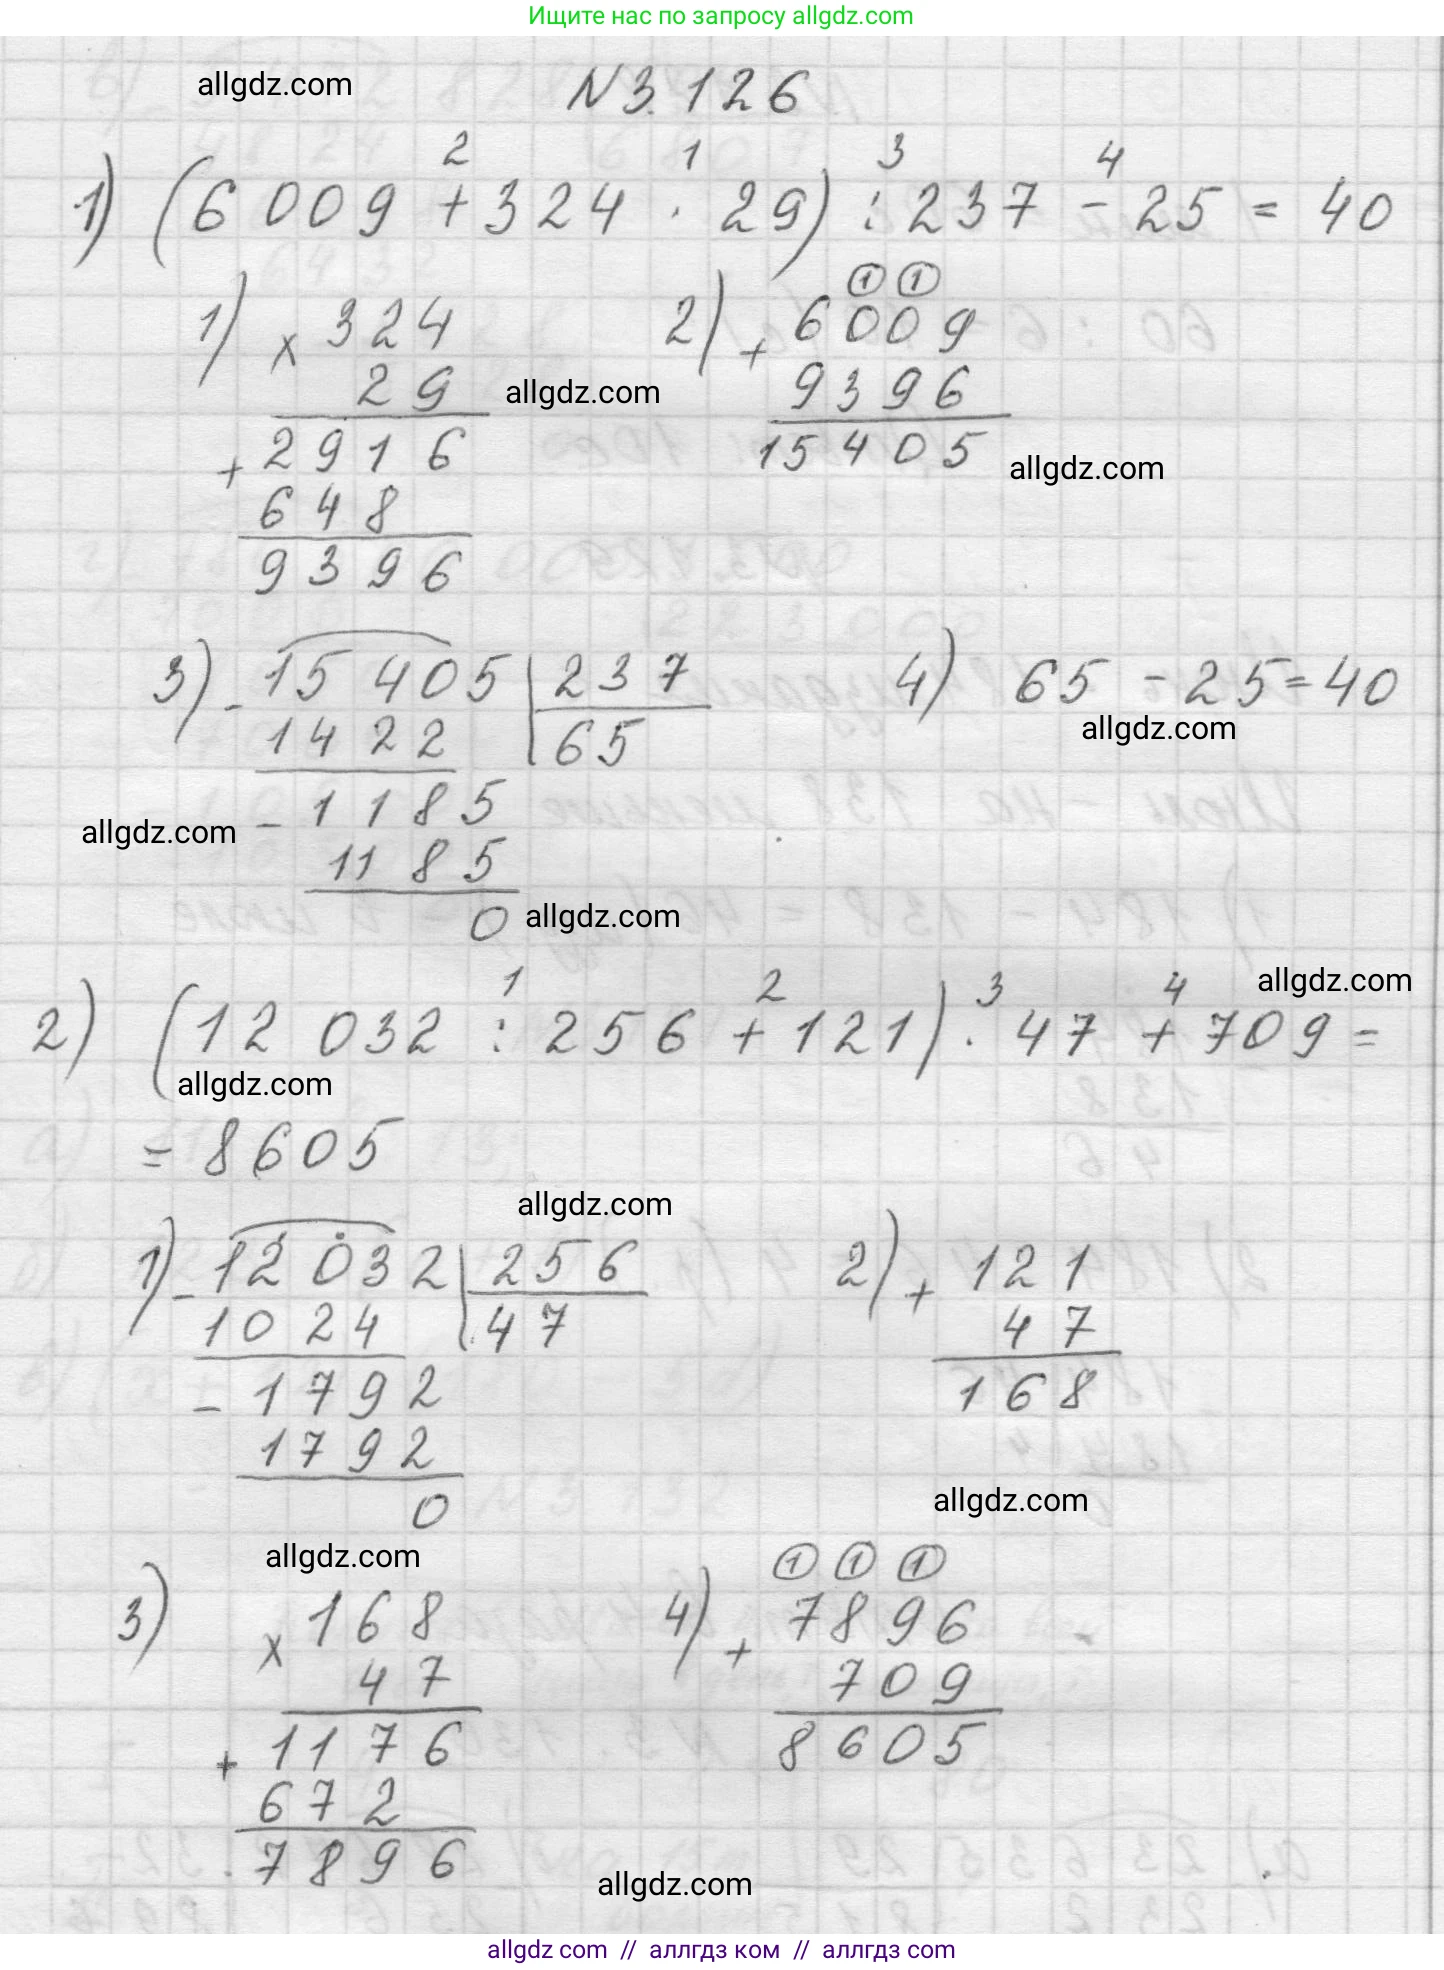 Ищите нас по запросу allgdz.com
allgdz.com
N 3.126
2 1 3 4
1) (6 009 + 324 · 29) : 237 - 25 = 40
1) × 324
29
+ 2916
648
9396
2) + 6009
① ①
9396
15405
allgdz.com
allgdz.com
3) - 15 405 | 237
1422 | 65
- 1185
1185
0
4) 65 - 25 = 40
allgdz.com
allgdz.com
allgdz.com
1 2 3 4
allgdz.com
2) (12 032 : 256 + 121) · 47 + 709 =
allgdz.com
= 8605
allgdz.com
1) - 12 032 | 256
1024 | 47
- 1792
1792
0
2) + 121
47
168
allgdz.com
allgdz.com
3) × 168
47
+ 1176
672
7896
4) + 7896
① ① ①
709
8605
allgdz.com
allgdz com // аллгдз ком // аллгдз com